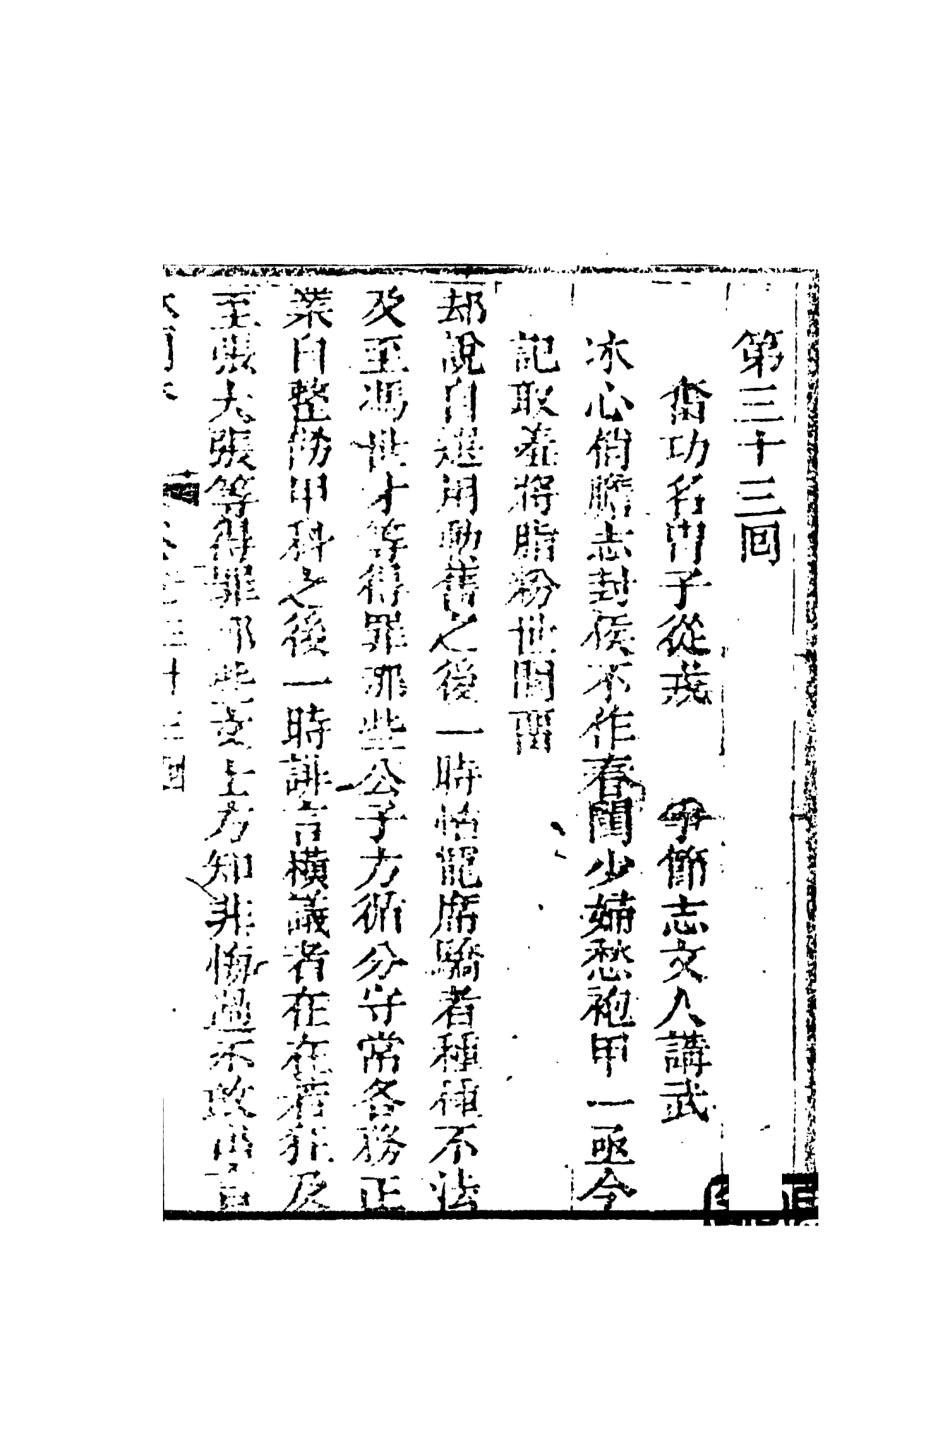 第三十三回
奮功名胄子從戎　爭節志文人講武
冰心俏膽志封侯不作春閨少婦愁袍甲一亟今
記取羞將脂粉世間留
却說自選用勲舊之後一時怙寵席驕者種種不法
及至馮世才等得罪那些公子方循分守常各務正
業自整飭甲科之後一時誹言橫議者在在若狂及
至張大張等得罪那些文士方知非悔過不敢
卷之三十三回